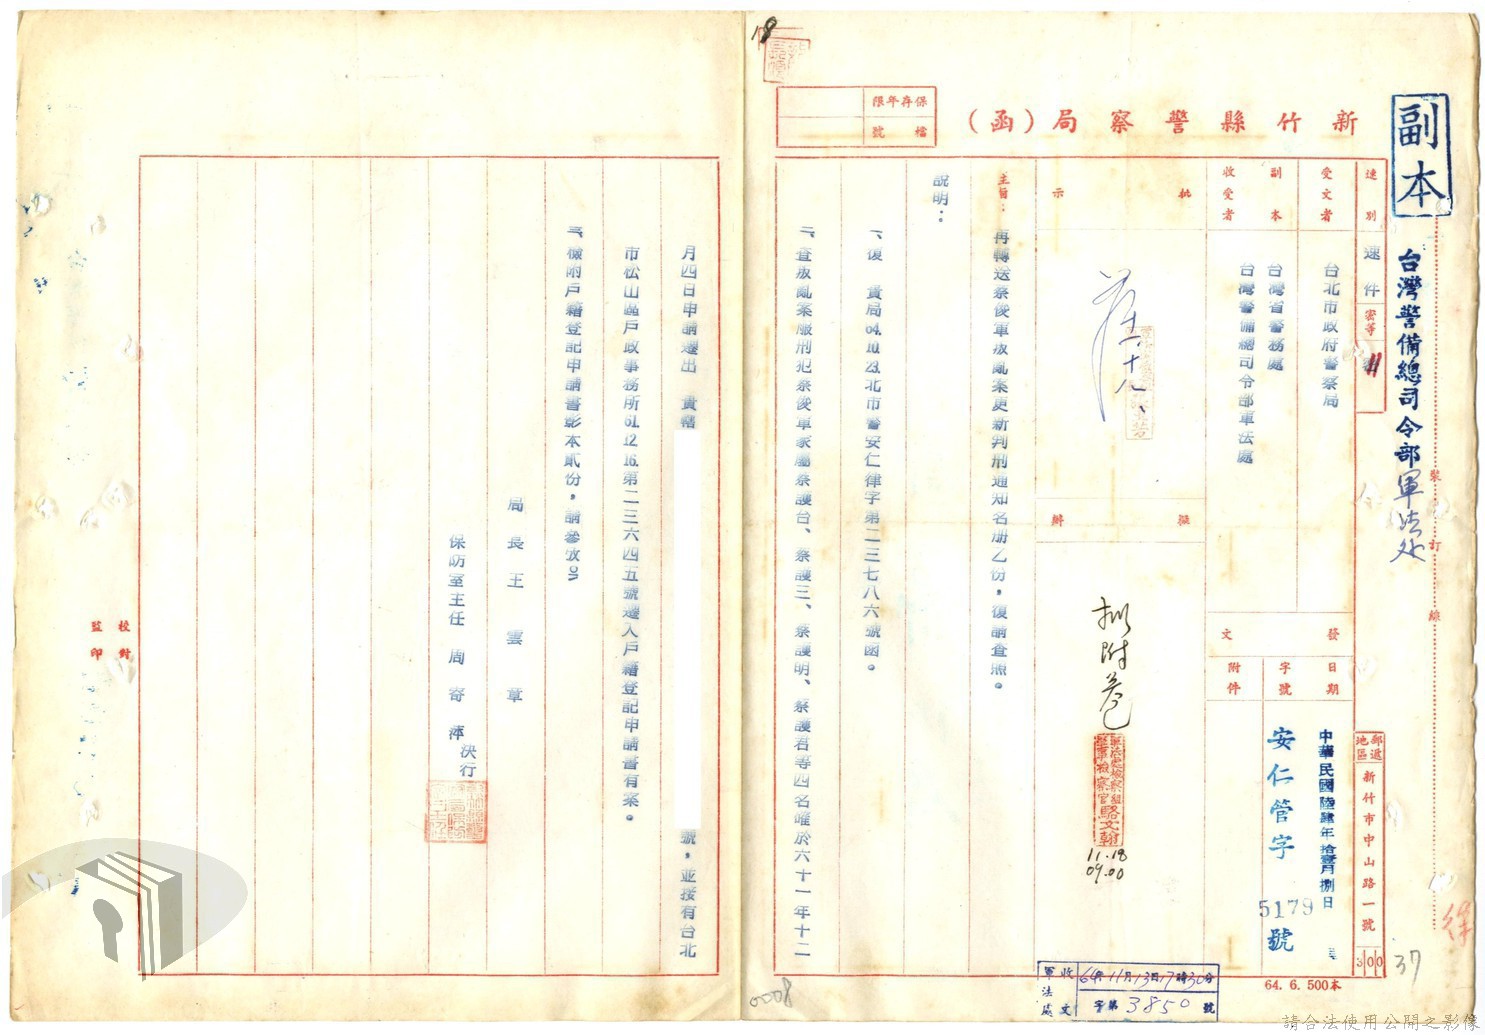 副本
台灣警備總司令部軍法处
新竹縣警察局(函)
保存年限
檔號
速別
速件
密等
受文者
台北市政府警察局
副本
收受者
台灣省警務處
台灣警備總司令部軍法處
批示
擬辦
擬附卷
軍法處檢察組
軍事檢察官 駱文翰
11.18
09.00
發文
日期
中華民國陸肆年拾壹月捌日
字號
安仁管字
5179
號
附件
郵遞
地區
新竹市中山路一號
300
裝訂線
主旨:
再轉送蔡俊軍叛亂案更新判刑通知名册乙份,復請查照。
說明:
一、復 貴局64.10.23.北市警安仁律字第二三七八六號函。
二、查叛亂案服刑犯蔡俊軍家屬蔡護台、蔡護三、蔡護明、蔡護君等四名確於六十一年十二
月四日申請遷出 貴轄
號,並按有台北
市松山區戶政事務所61.12.16.第二三六四五號遷入戶籍登記申請書有案。
三、檢附戶籍登記申請書影本貳份,請參攷。
局長 王雲章
保防室主任 周寄萍
決行
校對
監印
軍法處
收文
64年11月13日17時30分
字第3850號
64. 6. 500本
0008
37
請合法使用公開之影像